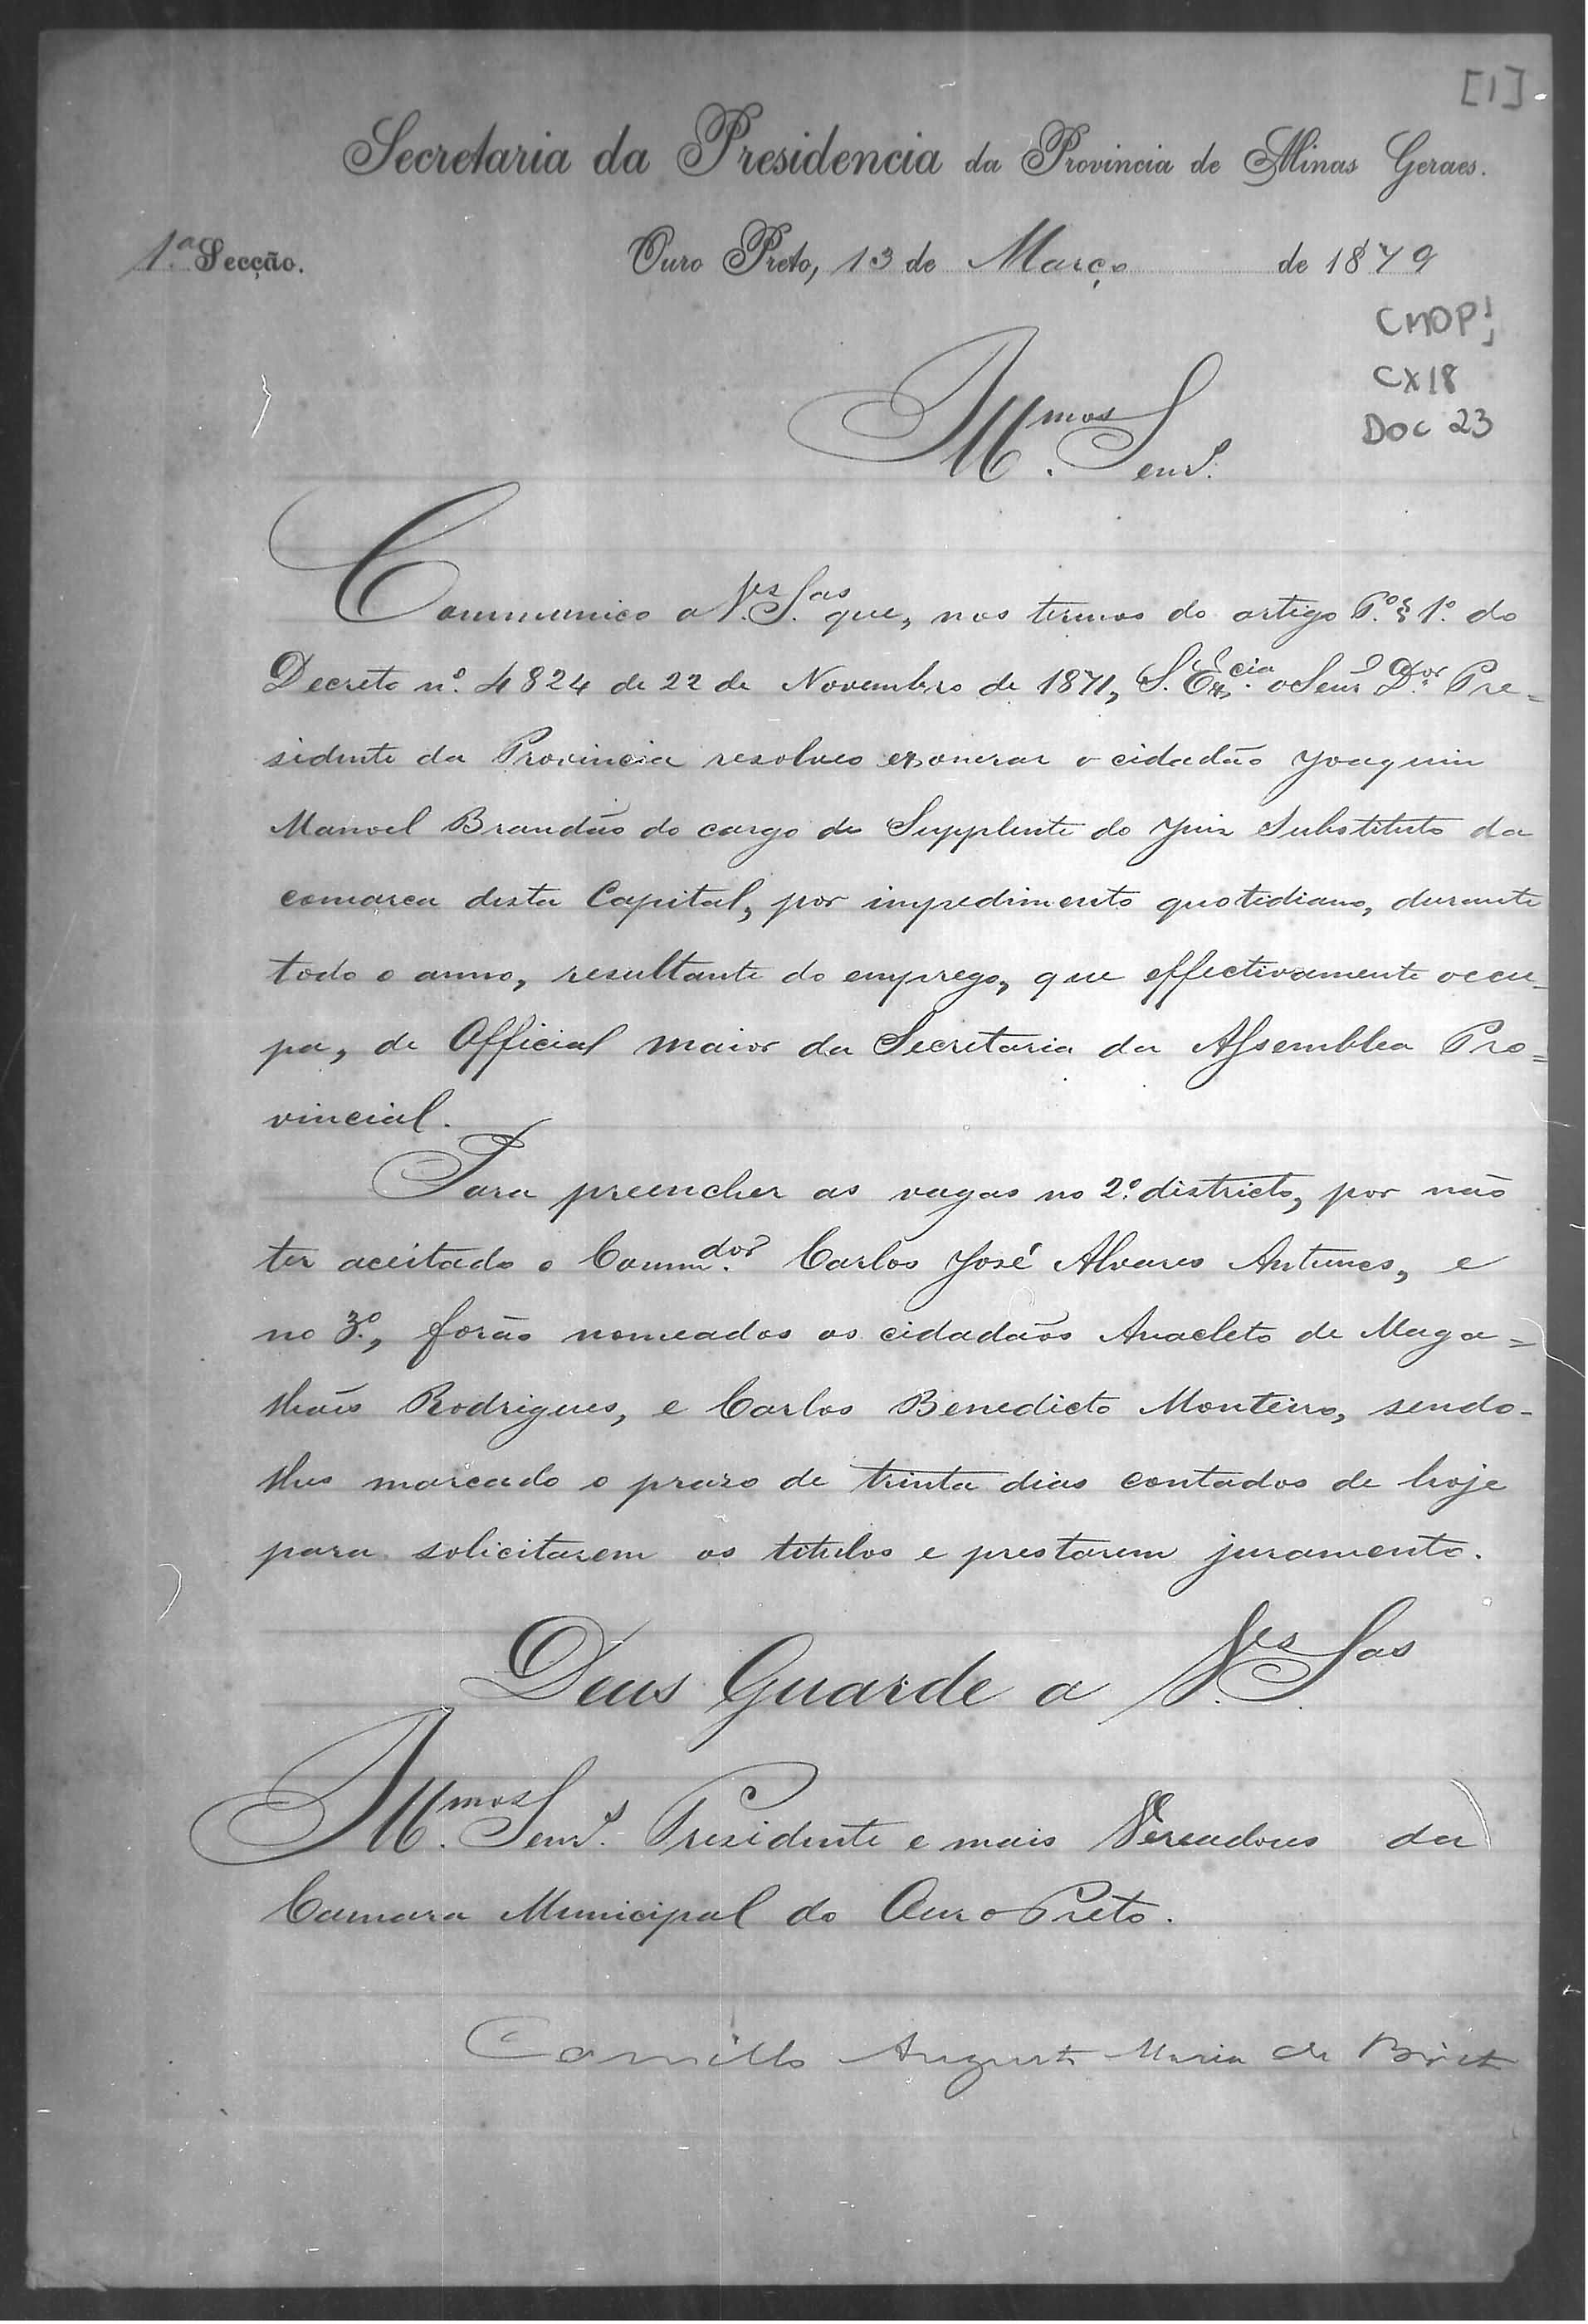 [1]
Secretaria da Presidencia da Provincia de Minas Geraes.
1.ª Secção. Ouro Preto, 13 de Março de 1879
CMOP!
CX18
DOC 23
Ill.mos Senr.s
Communico a V.es S.as que, nos termos do artigo 6.º § 1.º do
Decreto n.º 4824 de 22 de Novembro de 1871, S. Ex.cia o Senr D.or Pre=
sidente da Provincia resolveo exonerar o cidadão Joaquim
Manoel Brandão do cargo de Supplente do Juiz Substituto da
comarca desta Capital, por impedimento quotidiano, durante
todo o anno, resultante do emprego, que effectivamente occu=
pa, de Official maior da Secretaria da Assemblea Pro=
vincial.
Para preencher as vagas no 2.º districto, por não
ter aceitado o Comm.dor Carlos José Alvares Antunes, e
no 3.º, forão nomeados os cidadãos Anacleto de Maga=
lhães Rodrigues, e Carlos Benedicto Monteiro, sendo-
lhes marcado o prazo de trinta dias contados de hoje
para solicitarem os titulos e prestarem juramento.
Deus Guarde a V.es S.as
Ill.mos Senr.s Presidente e mais Vereadores da
Camara Municipal do Ouro Preto.
Camillo Augusto Maria de Brito